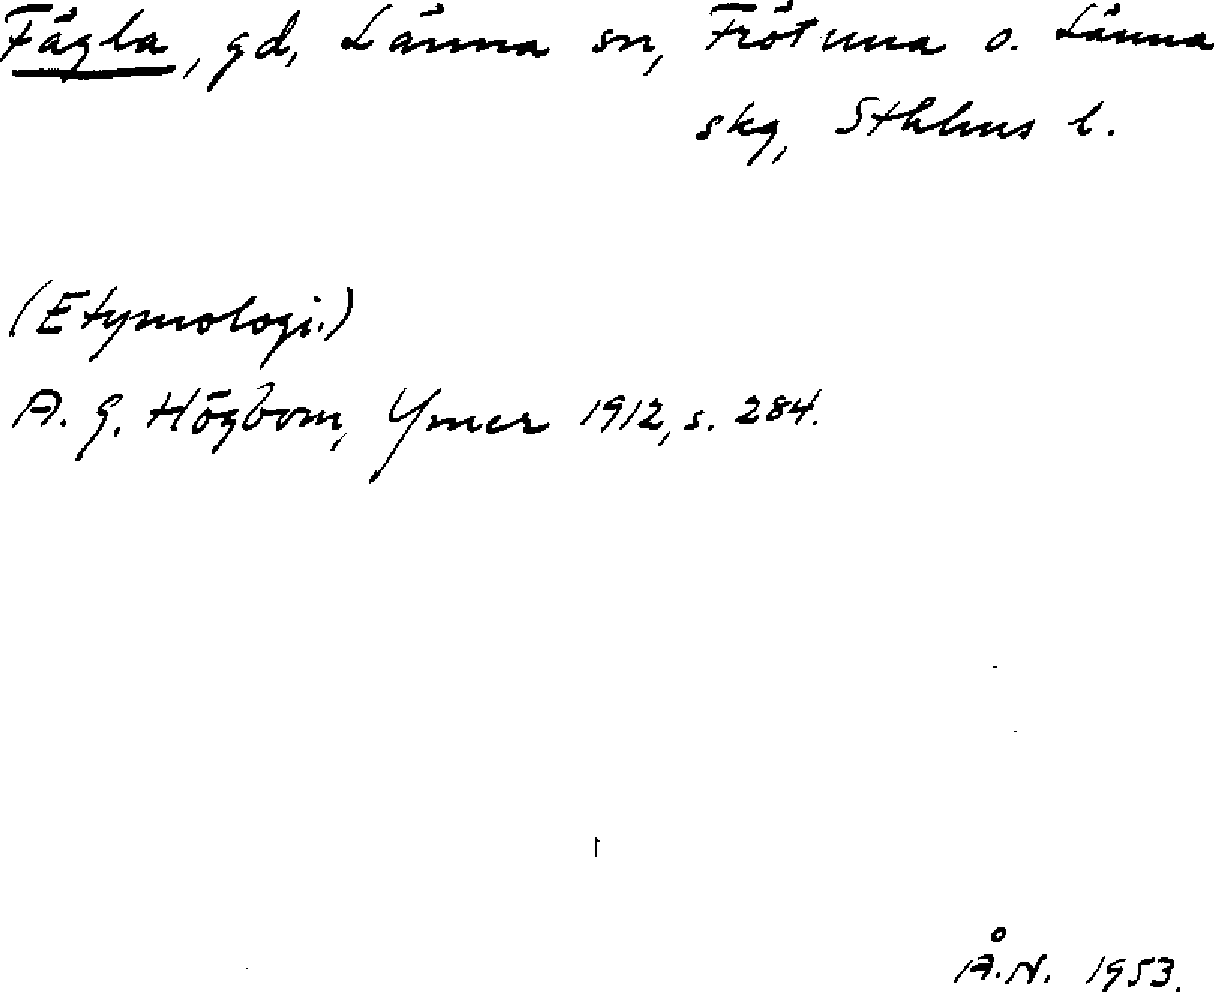 Fägla, gd, Länna sn, Frötuna o. Länna
skg, Sthlms l.
(Etymologi.)
A. G. Högbom, Ymer 1912, s. 284.
Å.N. 1953.